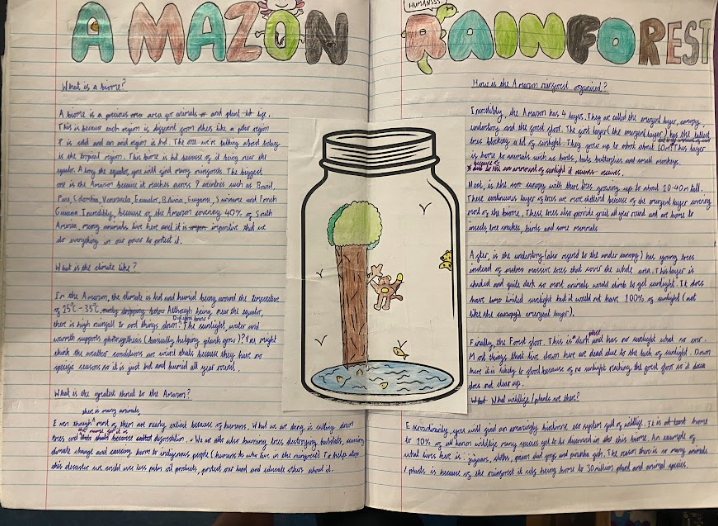 AMAZON
RAINFOREST
What is a biome?
A biome is a precious area for animals and plant life.
This is because each region is different from others like a polar region
is cold and an arid region is hot. The one we're talking about today
is the tropical region. This biome is hot because of it being near the
equator. Along the equator, you will find many rainforests. The biggest
one is the Amazon because it reaches across 9 countries such as Brazil,
Peru, Colombia, Venezuela, Ecuador, Bolivia, Guyana, Suriname and French
Guiana. Incredibly, because of the Amazon covering 40% of South
America, many animals live here and it is super important that we
do everything in our power to protect it.
What is the climate like?
In the Amazon, the climate is hot and humid being around the temperature
of 25°C - 35°C, Although being near the equator,
there is high rainfall to cool things down. The sunlight, water and
warmth supports photosynthesis (basically helping plants grow)! You might
think the weather conditions are weird because they have no
specific seasons as it is just hot and humid all year round.
What is the greatest threat to the Amazon?
there is many animals,
Even though most of them are nearly extinct because of humans. What we are doing is cutting down
trees
We are also burning trees destroying habitats, causing
climate change and causing harm to indigenous people (humans who live in the rainforest). To help stop
this disaster we could use less palm oil products, protect our land and educate others about it.
How is the Amazon rainforest organised?
Incredibly, the Amazon has 4 layers. They are called the emergent layer, canopy,
understory and the forest floor. The first layer (the emergent layer) has the tallest
trees blocking a lot of sunlight. They grow up to about 60m! This layer
is home to animals such as birds, bats, butterflies and small monkeys
because of
amount of sunlight it receives.
Next, is the canopy with trees growing up to about 20-40m tall.
These continuous layer of trees are more sheltered because of the emergent layer covering
most of the biome. These trees also provide fruit all year round and are home to
insects, tree snakes, birds and some mammals.
After, is the understory (also referred to the under canopy) has young trees
instead of massive trees that cover the whole area. This layer is
shaded and quite dark so most animals would climb to get sunlight. It does
have some limited sunlight but it would not have 100% of sunlight (not
like the emergent layer).
Finally, the Forest floor. This is a dark place and has no sunlight what so ever.
Most things that live down here are dead due to the lack of sunlight. Down
here it is likely to flood because of no sunlight reaching the forest floor so it does
does not clear up.
What wildlife/plants are there?
Extraordinarily, you will find an amazingly biodiverse ecosystem full of wildlife. It is at least home
to 10% of all known wildlife many species yet to be discovered in this biome. An example of
what lives here is: jaguars, sloths, poison dart frogs and piranha fish. The reason there is so many animals
/ plants is because of the rainforest it is being home to 30 million plant and animal species.